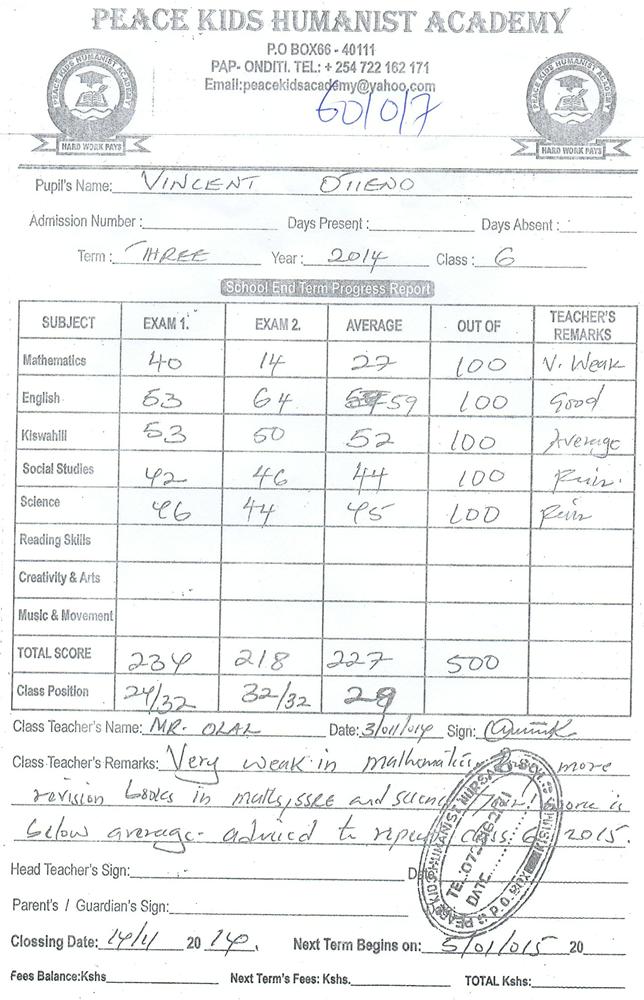 PEACE KIDS HUMANIST ACADEMY
P.O BOX66 - 40111
PAP- ONDITI. TEL: + 254 722 162 171
Email:peacekidsacademy@yahoo.com
PEACE KIDS HUMANIST ACADEMY
HARD WORK PAYS
PEACE KIDS HUMANIST ACADEMY
HARD WORK PAYS
Pupil's Name: VINCENT OTIENO
Admission Number : Days Present : Days Absent :
Term : THREE Year : 2014 Class : 6
School End Term Progress Report
SUBJECT EXAM 1. EXAM 2. AVERAGE OUT OF TEACHER'S REMARKS
Mathematics 40 14 27 100 V. Weak
English 53 64 59 100 Good
Kiswahili 53 50 52 100 Average
Social Studies 42 46 44 100
Science 46 44 45 100
Reading Skills
Creativity & Arts
Music & Movement
TOTAL SCORE 234 218 227 500
Class Position 24/32 32/32 29
Class Teacher's Name: MR. OLAL Date: 3/011/014 Sign:
Class Teacher's Remarks: Very weak in mathematics, more
revision books in maths, SSRE and science
below average. adviced to repeat class 6 2015.
Head Teacher's Sign:
Parent's / Guardian's Sign:
Clossing Date: 14/11 20 14. Next Term Begins on: 5/01/015 20
Fees Balance:Kshs Next Term's Fees: Kshs. TOTAL Kshs: